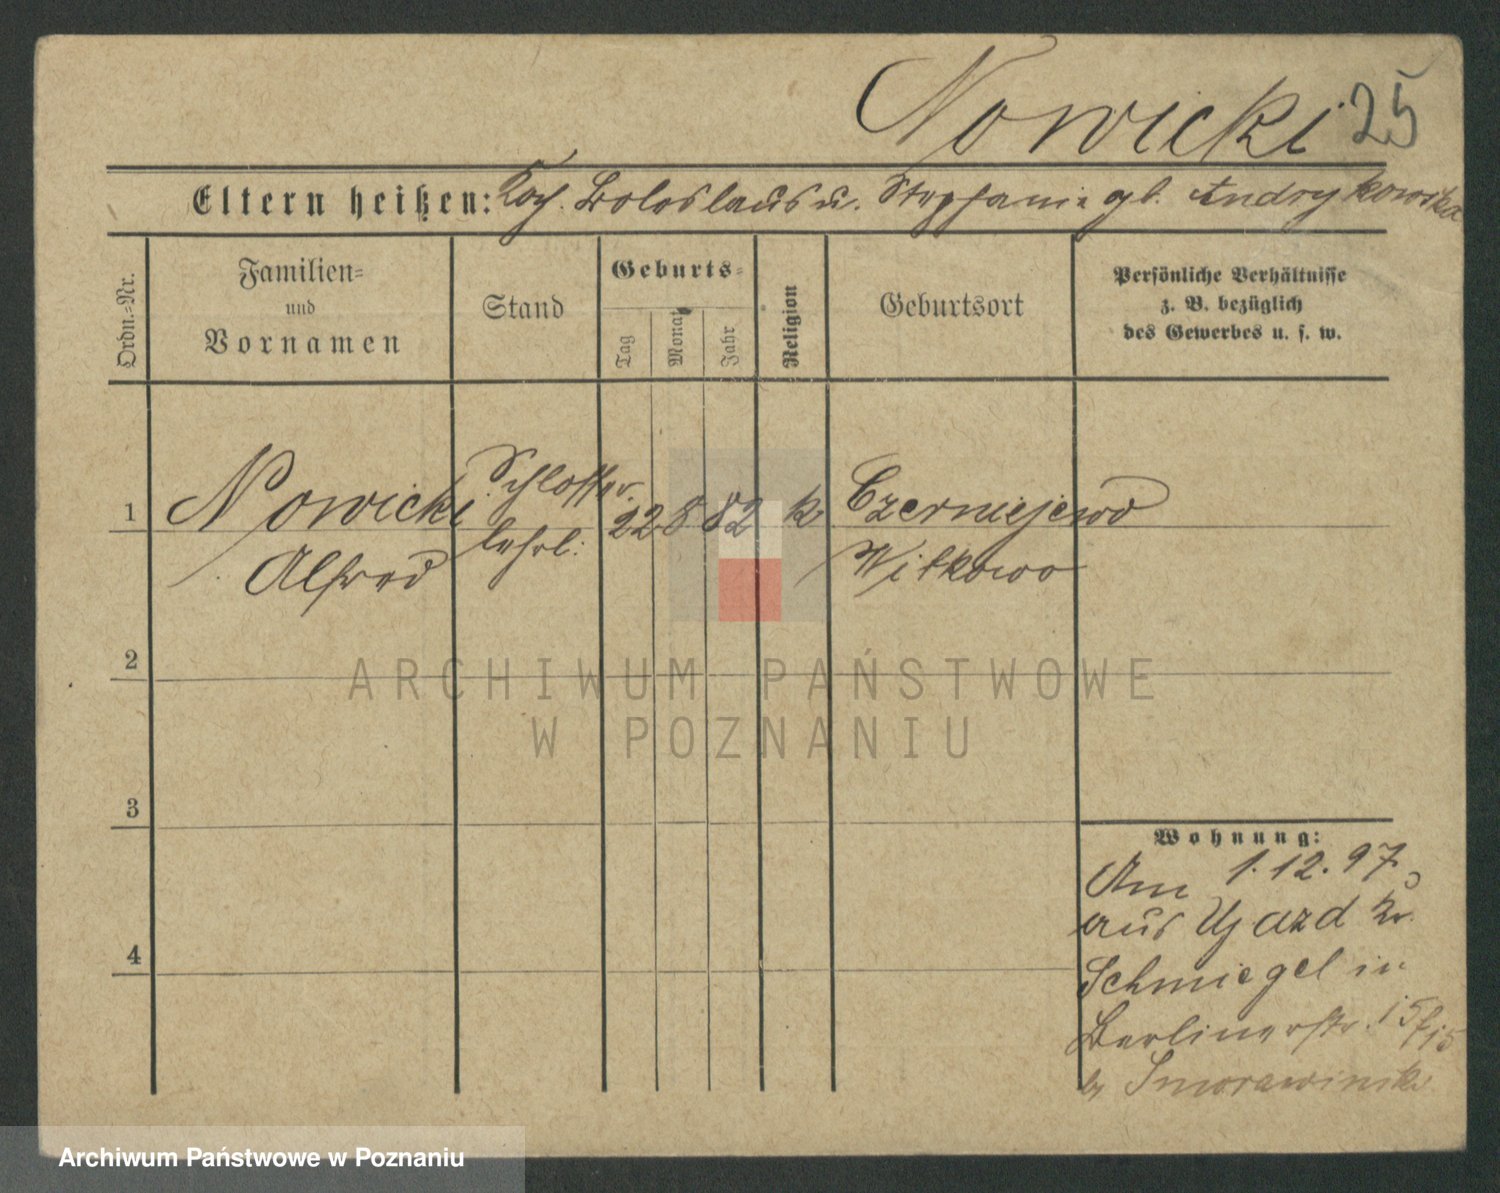 Nowicki 25
Eltern heißen: Koch. Boleslaus u. Stephanie gb. Andrykowska
Ordn.=Nr.
Familien=
und
Vornamen
Stand
Geburts=
Tag
Monat
Jahr
Religion
Geburtsort
Persönliche Verhältnisse
z. B. bezüglich
des Gewerbes u. s. w.
1 Nowicki Schlosser 22 8 82 k Czerniejewo
Alfred lehrl. Witkowo
2
3
4
Wohnung:
Am 1.12.97.
aus Ujazd Kr.
Schmiegel in
Berlinerstr. 15
by Smorawinski
ARCHIWUM PAŃSTWOWE
W POZNANIU
Archiwum Państwowe w Poznaniu